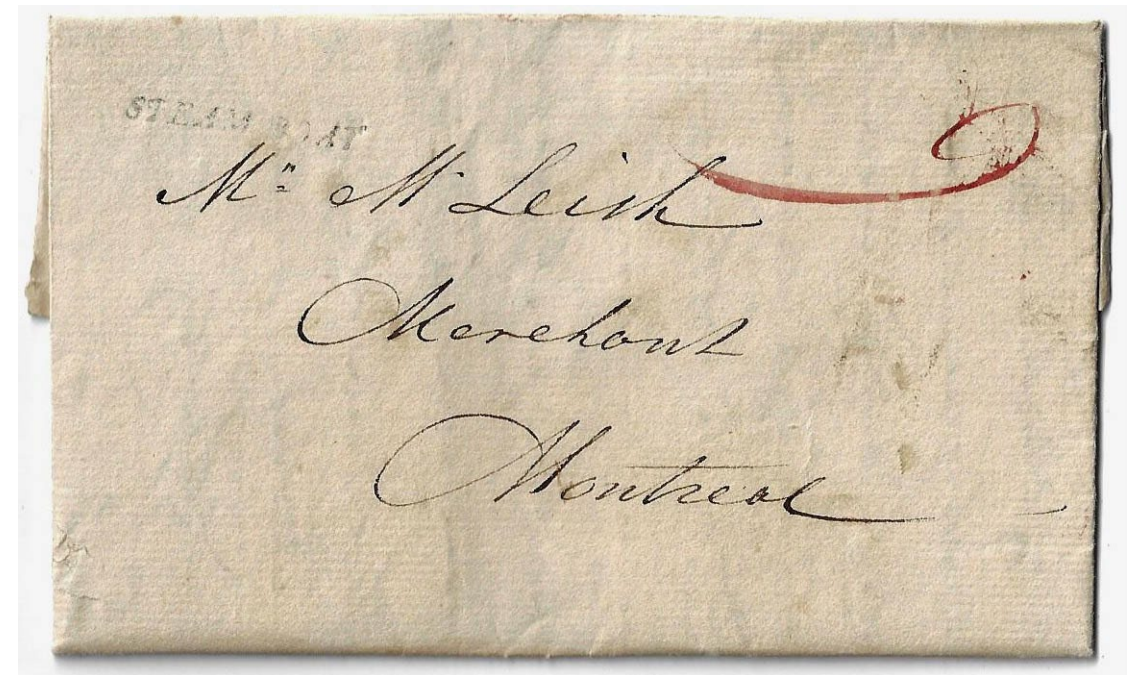 STEAM BOAT
Mr McLeish
Merchant
Montreal